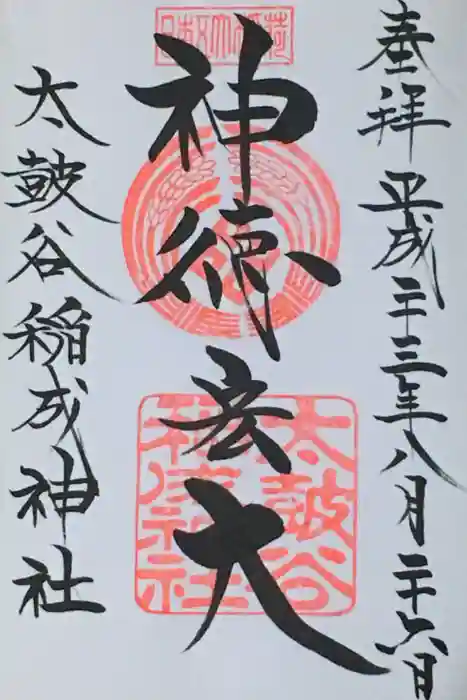 奉拝 平成二十三年八月二十六日
日本五大稲荷
神徳宏大
太鼓谷
稲成神社
太鼓谷稲成神社